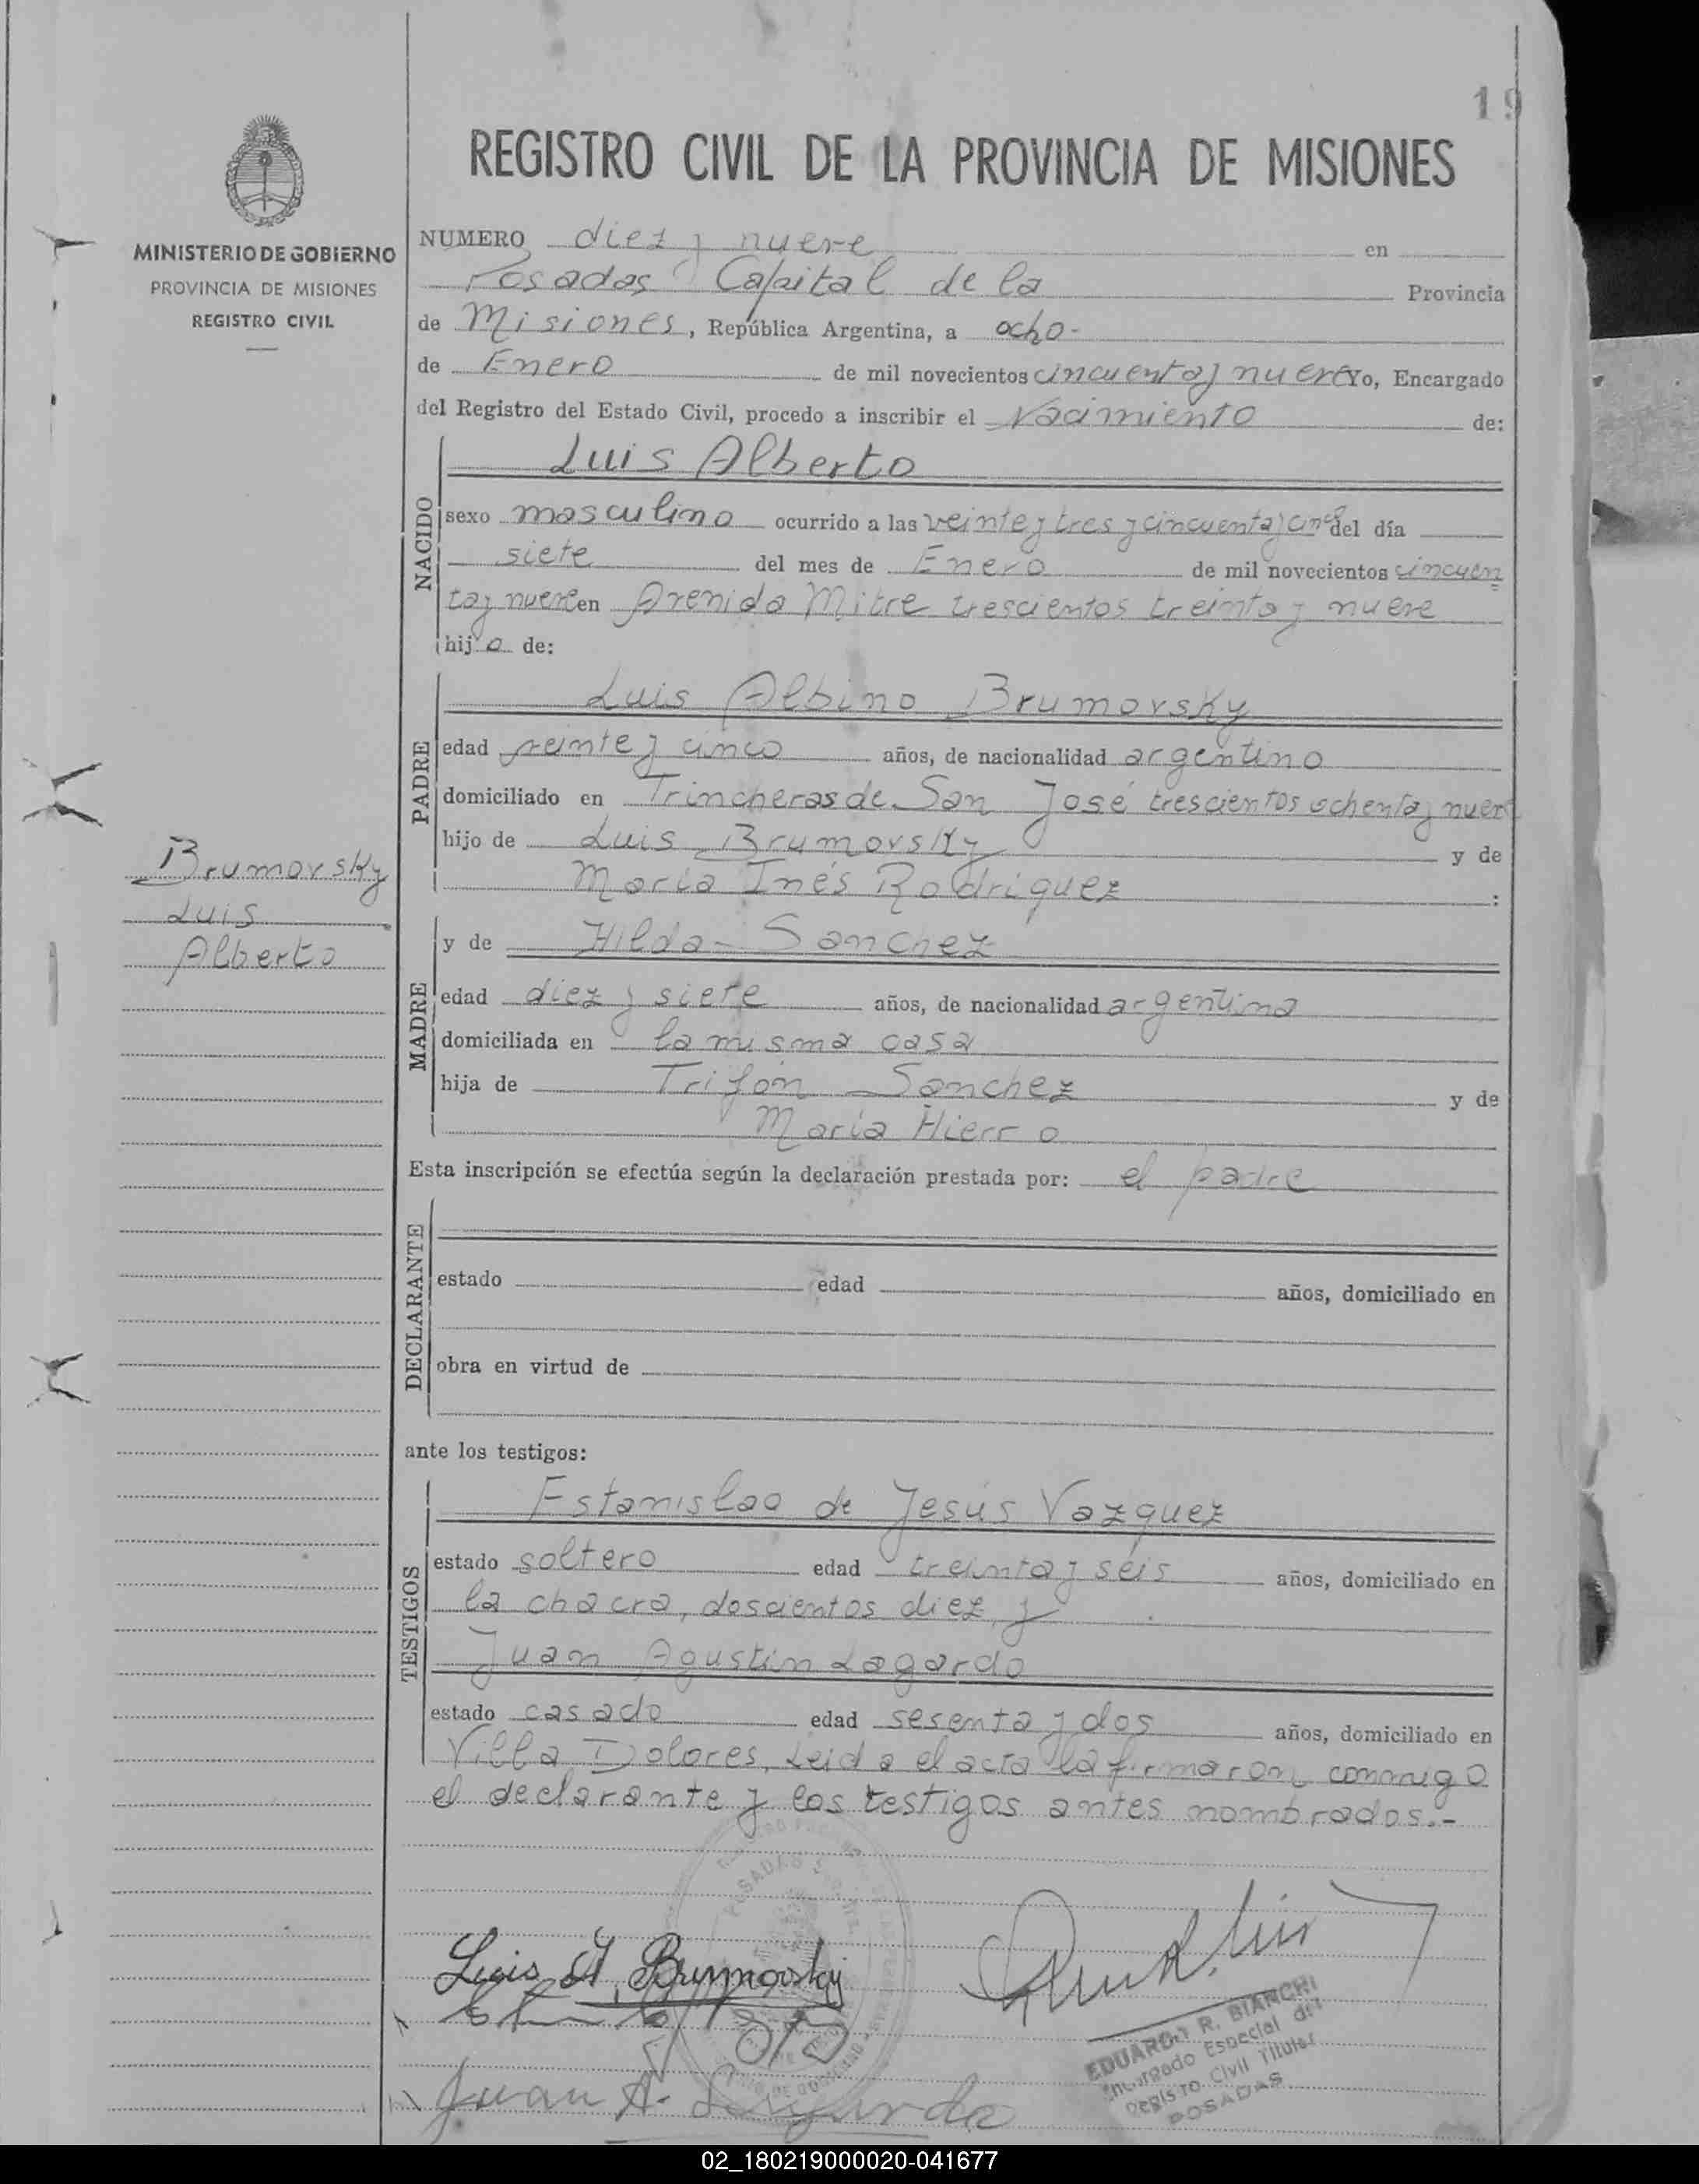 19
REGISTRO CIVIL DE LA PROVINCIA DE MISIONES
MINISTERIO DE GOBIERNO
PROVINCIA DE MISIONES
REGISTRO CIVIL
NUMERO diez y nueve en
Posadas Capital de la Provincia
de Misiones, República Argentina, a ocho-
de Enero de mil novecientos cincuenta y nueve Yo, Encargado
del Registro del Estado Civil, procedo a inscribir el Nacimiento de:
NACIDO
Luis Alberto
sexo masculino ocurrido a las veinte y tres y cincuenta y cinco del día
siete del mes de Enero de mil novecientos cincuen
ta y nueve en Avenida Mitre trescientos treinta y nueve
hijo de:
PADRE
Luis Albino Brumovsky
edad veinte y cinco años, de nacionalidad argentino
domiciliado en Trincheras de San José trescientos ochenta y nueve
hijo de Luis Brumovsky y de
María Inés Rodriguez :
Brumovsky
Luis
Alberto
MADRE
y de Hilda- Sanchez
edad diez y siete años, de nacionalidad argentina
domiciliada en la misma casa
hija de Trifón Sanchez y de
María Hierro
Esta inscripción se efectúa según la declaración prestada por: el padre
DECLARANTE
estado edad años, domiciliado en
obra en virtud de
ante los testigos:
TESTIGOS
Estanislao de Jesús Vazquez
estado soltero edad treinta y seis años, domiciliado en
la chacra, doscientos diez, y
Juan Agustin Lagardo
estado casado edad sesenta y dos años, domiciliado en
Villa Dolores, Leida el acta la firmaron conmigo
el declarante y los testigos antes nombrados.-
POSADAS
Luis A. Brumovsky
EDUARDO R. BIANCHI
Encargado Especial del
Registro Civil Titular
POSADAS
Juan A. Lagarda
02_180219000020-041677